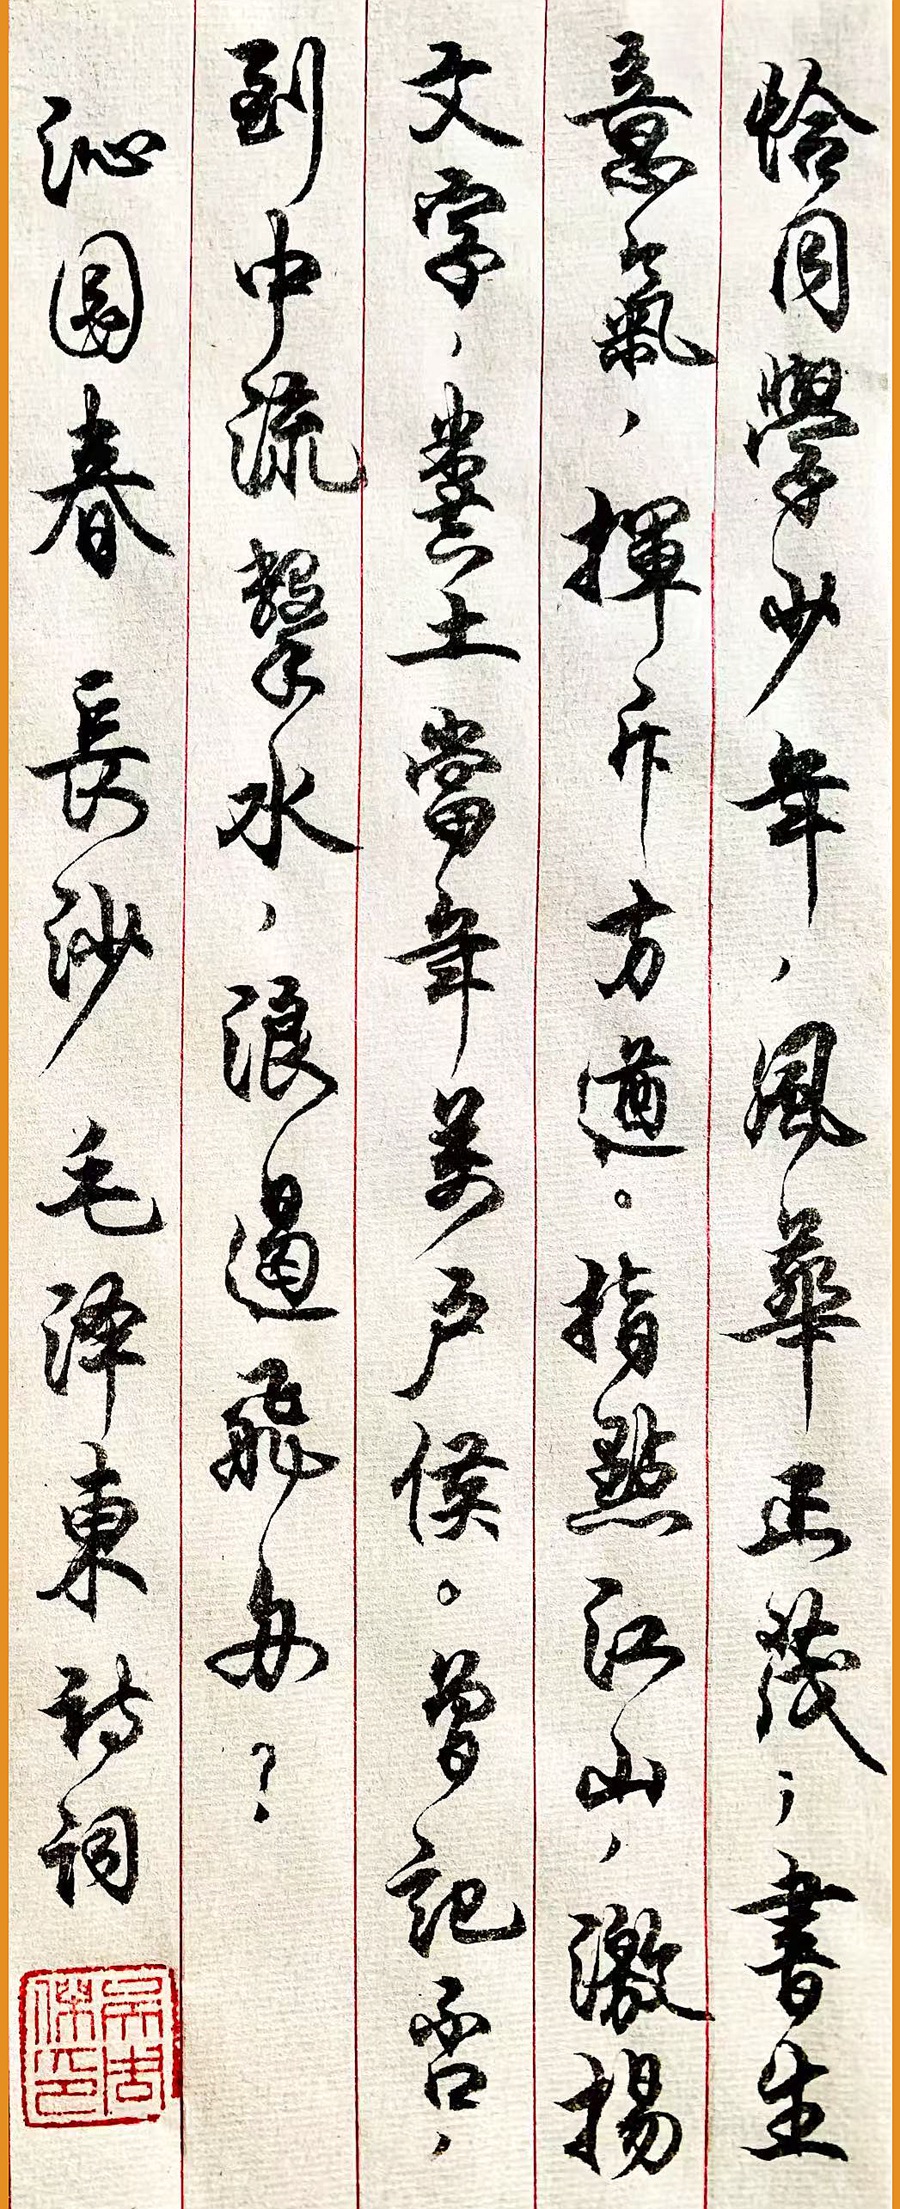 恰同學少年，風華正茂；書生
意氣，揮斥方遒。指點江山，激揚
文字，糞土當年萬户侯。曾記否，
到中流擊水，浪遏飛舟？
沁園春 長沙 毛泽東詩詞